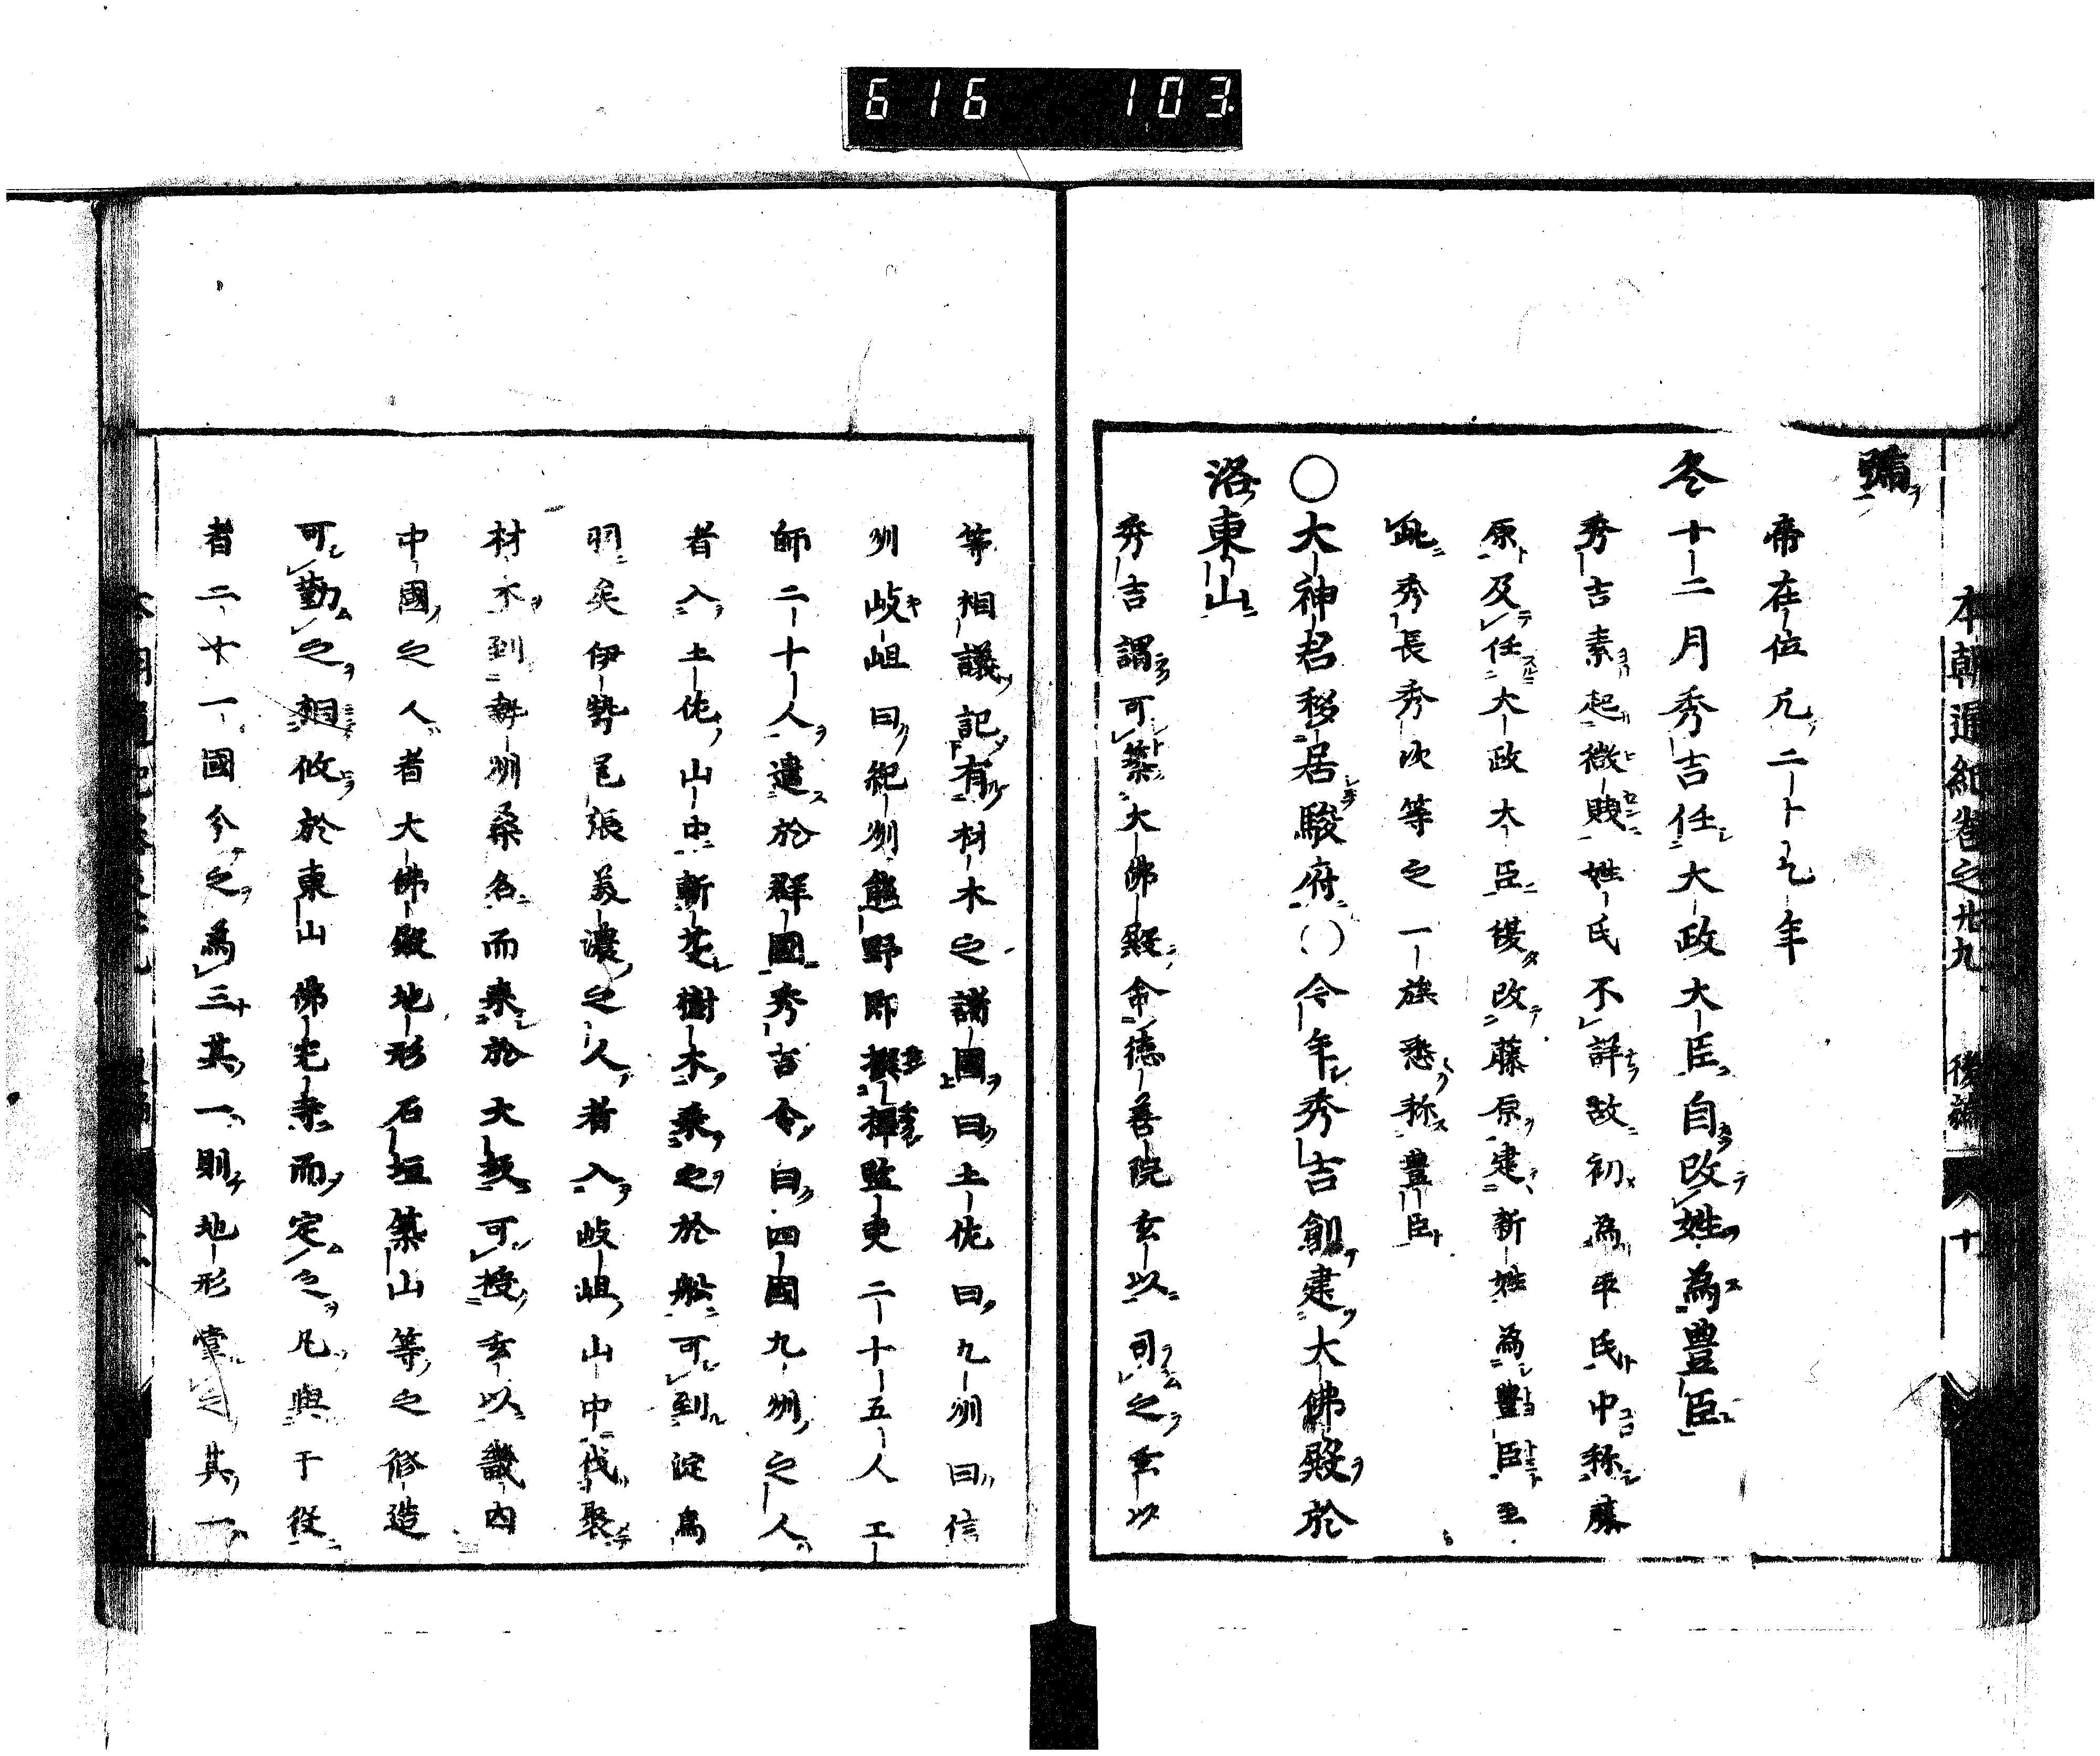 616 103
本朝通紀卷之廿九 後編 十
號
帝在位凡二十七年
冬十二月秀吉任大政大臣自改姓為豊臣
秀吉素起微賎姓氏不詳故初為平氏中称藤
原及任大政大臣復改藤原建新姓為豊臣至
此秀長秀次等之一族悉称豊臣
〇大神君移居駿府〇今年秀吉創建大佛殿於
洛東山
秀吉謂可築大佛殿命徳善院玄以司之玄以
等相議記有材木之諸國曰土佐曰九州曰信
州岐岨曰紀州熊野即撰擇監吏二十五人工
師二十人遣於群國秀吉令曰四國九州之人
者入土佐山中斬荖樹木乗之於船可到淀鳥
羽矣伊勢尾張美濃之人者入岐岨山中伐聚
材木到勢州桑名而来於大坂可授玄以畿内
中國之人者大佛殿地形石垣築山等之修造
可勤之相攸於東山佛光寺而定之凡與于役
者二十一國今之為三其一則地形掌之其一